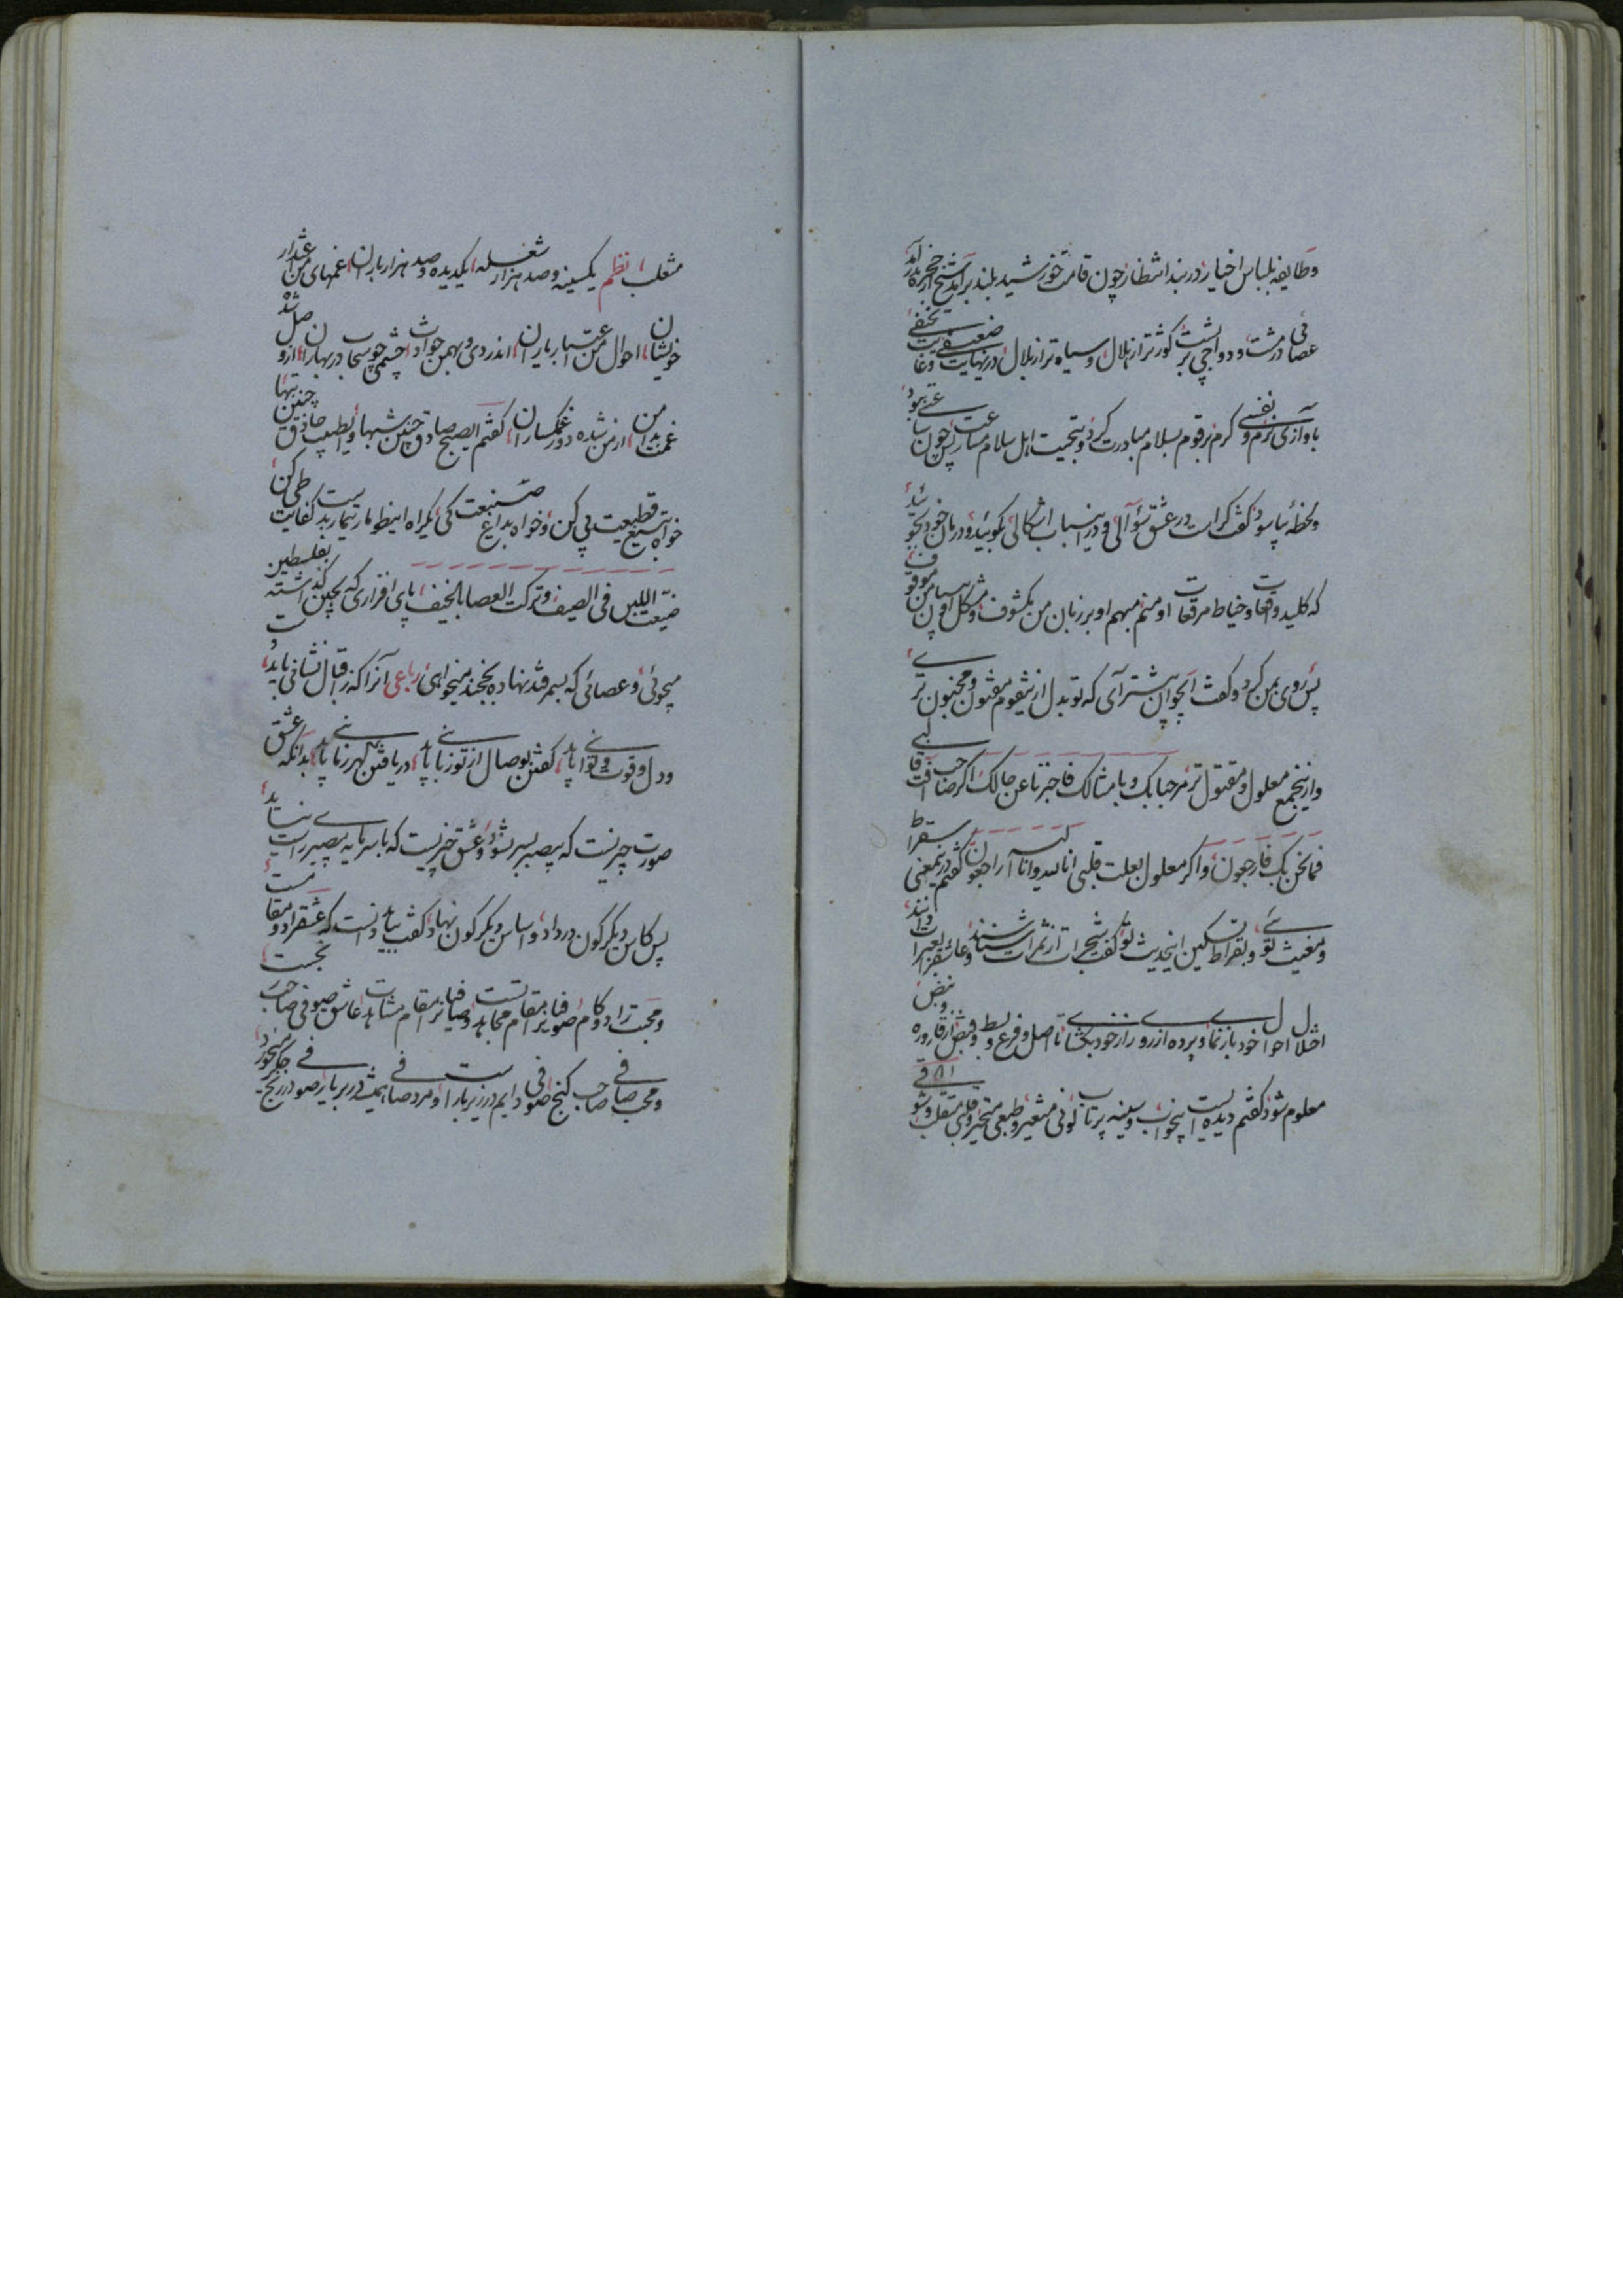 وطایفه بلباس اخیار در بند انتظار چون قامت خورشید بلند برآمد شیخ از حجره بدر آمد
عصائی در مشت و دواجی بر پشت کوژتر از هلال و سیاه تر از بلال در نهایت ضعیفی و غایت نحیفی
باوازی نرم و نفسی گرم بر قوم بسلام مبادرت کرد و بتحیت اهل سلام مسارعت نمود پس چون ساعتی ببود
ولحظهٔ بیاسود گفت کراست در عشق سؤالی و در اینباب اشکالی بگوئید و درمان خود بجوئید
که کلید واقعات و خیاط مرقعات او منم مبهم او بر زبان من مکشوف و مشکل او بر بیان من موقوف
پس روی بمن کرد و گفت ایجوان پیشتر آی که تو بدل ازینقوم مفتون و مجنون تری
وازینجمع معلول و مقتول تر مرحبا بک و بامثالک فاخبرنا عن حالک اگر صاحب آفت قالبی
فما نحن بک فارجعون و اگر معلول بعلت قلبی انا لله وانا الیه راجعون گفتم درینمعنی سقراط
ومغیث توئی و بقراط تسکین اینحدیث تو گفت شجرات از ثمرات شناسند و عاشقانرا بعبرات دانند
اختلال احوال خود باز نمای و پرده از روی راز خود بگشای تا اصل و فرع و بسط و قبض از قاروره و نبض
معلوم شود گفتم دیده ایست بیخواب و سینه پرتاب لونی متغیر و طبعی متحیر و قلبی منقلب وشوقی
متغلب نظم یکسینه و صد هزار شعله یکدیده و صد هزار باران غمهای من غمگذار
خویشان احوال من اعتبار یاران اندر دی و بهمن حوادث چشمی چو سحاب در بهاران از وصل شده
غمت بدامن از من شده دور غمگساران گفتم ایصبح صادق چنین شبها و ایطبیب حاذق چنین تبها
خواه بتیغ قطیعت پی کن و خواه بداغ صنیعت کی یکراه اینطومار تیمار بدست کفایت طی کن
ضیعت اللبن فی الصیف و ترکت العصا بالخیف پای افزاری که بچین گذاشتهٔ بفلسطین
میجوئی و عصائی که بسمرقند نهاده بخجند میخواهی رباعی آنرا که ز اقبال نشانی باید
ودل وقوت و توانی باید گفتن بوصال از تو زبانی باید دریافتن مهر زبانی باید بدانکه عشق
صورت چیزیست که بیصبر بسر نشود و عشق چیزیست که با سرمایه بیصبر راست نیاید
پس کاس دیگرگون در داد و اساس دیگرگون نهاد گفت بباید دانست که عشق را دو مقامست
ومحبت را دو گام صوفیانرا مقام مجاهدتست وصافیانرا مقام مشاهدت عاشق صوفی صاحب محبت
ومحب صافی صاحب گنج صوفی دایم در زیر بار است و مرد صافی همیشه در بر یار صوفی در رنج جگر میخورد